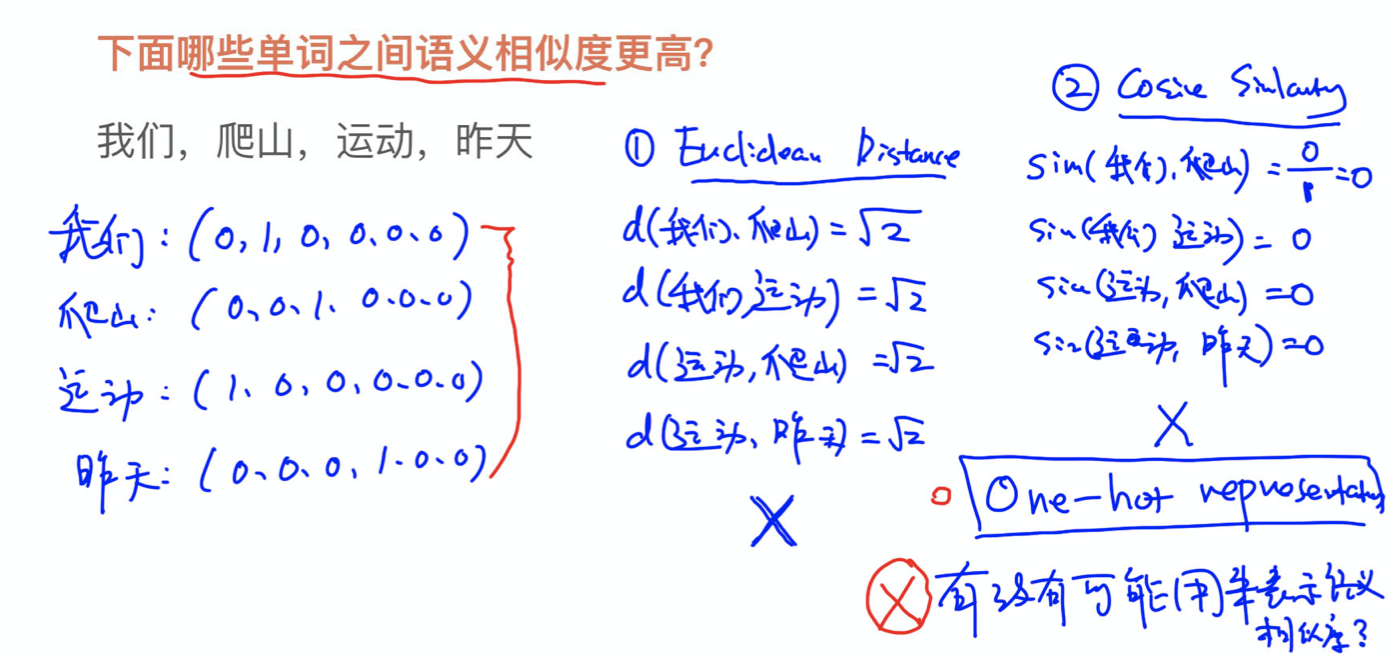 下面哪些单词之间语义相似度更高?
我们，爬山，运动，昨天
我们：(0,1,0,0.0.0)
爬山：(0、0、1、0.0.0)
运动：(1、0、0、0.0.0)
昨天：(0、0、0,1.0.0)
① Euclidean Distance
d(我们、爬山)=√2
d(我们,运动)=√2
d(运动,爬山)=√2
d(运动、昨天)=√2
X
② Cosine Similarity
Sim(我们、爬山)=0/1=0
Sim(我们 运动)=0
Sim(运动,爬山)=0
Sim(运动,昨天)=0
X
One-hot representation
X 有没有可能用来表示语义
相似度?